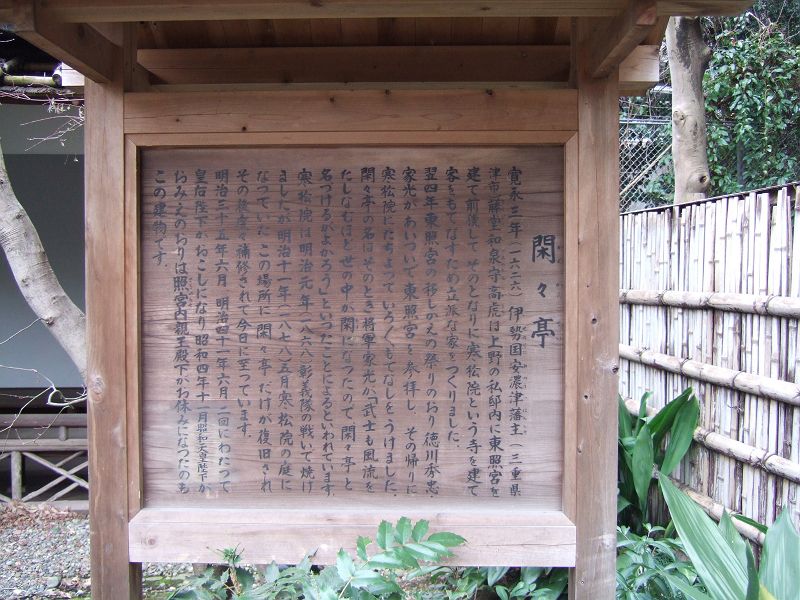 閑々亭
寛永三年(一六二六)伊勢国安濃津藩主(三重県
津市)藤堂和泉守高虎は上野の私邸内に東照宮を
建て前後して そのとなりに寒松院という寺を建て
家をもてなすため立派な家をつくりました。
翌四年東照宮の移しかえの祭りのおり徳川秀忠・
家光があいついで東照宮を参拝し その帰りに
寒松院にたちよって いろ〱もてなしをうけました。
閑々亭の名はそのとき将軍家光が「武士も風流を
たしなむほど世の中が閑になったので 閑々亭と
名づけるがよかろう」といったことによるといわれています。
寒松院は明治元年(一八六八)彰義隊の戦いで焼け
ましたが明治十一年(一八七八)五月寒松院の庭に
なっていた この場所に「閑々亭」だけが復旧され
その後度々補修されて今日に至っています。
明治三十五年六月 明治四十一年六月 二回にわたって
皇后陛下がおこしになり 昭和四年十一月昭和天皇陛下が
おみえのおりは照宮内親王殿下がお休みになったのも
この建物です。